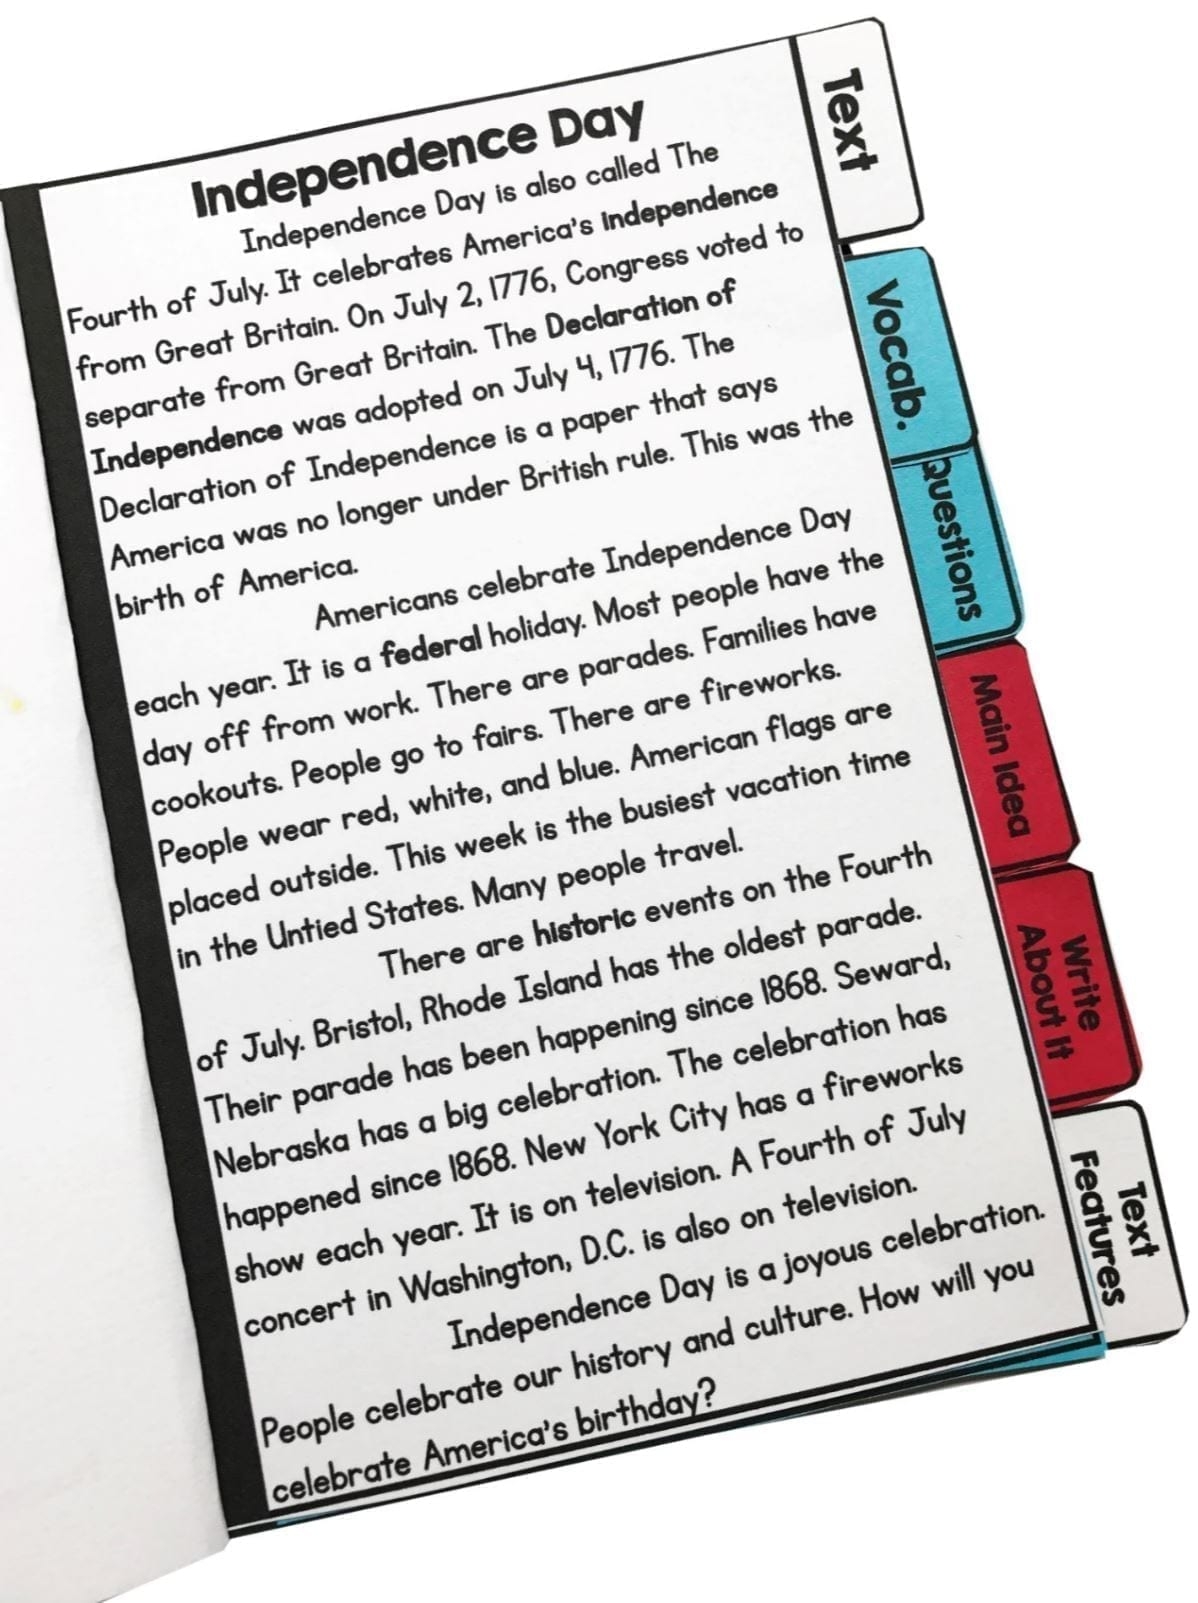 Independence Day
Independence Day is also called The
Fourth of July. It celebrates America's independence
from Great Britain. On July 2, 1776, Congress voted to
separate from Great Britain. The Declaration of
Independence was adopted on July 4, 1776. The
Declaration of Independence is a paper that says
America was no longer under British rule. This was the
birth of America.
Americans celebrate Independence Day
each year. It is a federal holiday. Most people have the
day off from work. There are parades. Families have
cookouts. People go to fairs. There are fireworks.
People wear red, white, and blue. American flags are
placed outside. This week is the busiest vacation time
in the Untied States. Many people travel.
There are historic events on the Fourth
of July. Bristol, Rhode Island has the oldest parade.
Their parade has been happening since 1868. Seward,
Nebraska has a big celebration. The celebration has
happened since 1868. New York City has a fireworks
show each year. It is on television. A Fourth of July
concert in Washington, D.C. is also on television.
Independence Day is a joyous celebration.
People celebrate our history and culture. How will you
celebrate America's birthday?
Text
Vocab.
Questions
Main Idea
Write
About It
Text
Features